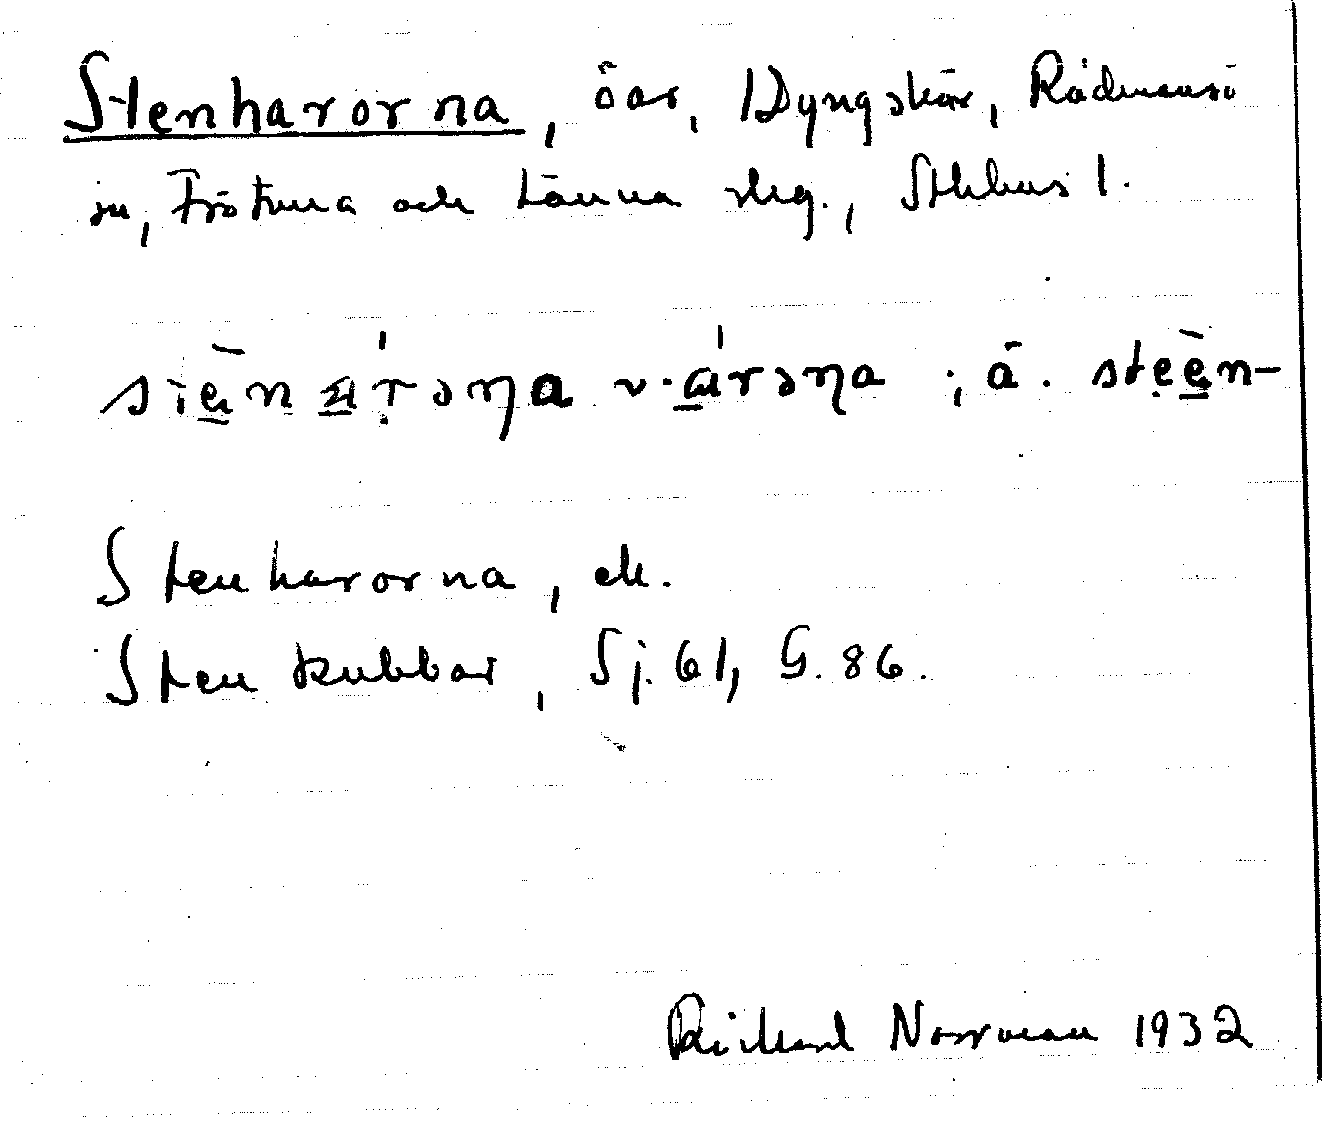 Stenharorna, öar, Dyngskär, Rådmansö
sn, Frötuna och Länna skg., Sthlms l.
stèn árəŋa v. árəŋa ; ä. steèn-
Stenharorna, ek.
Stenkubbar, Sj. 61, G. 86.
Rickard Norrman 1932